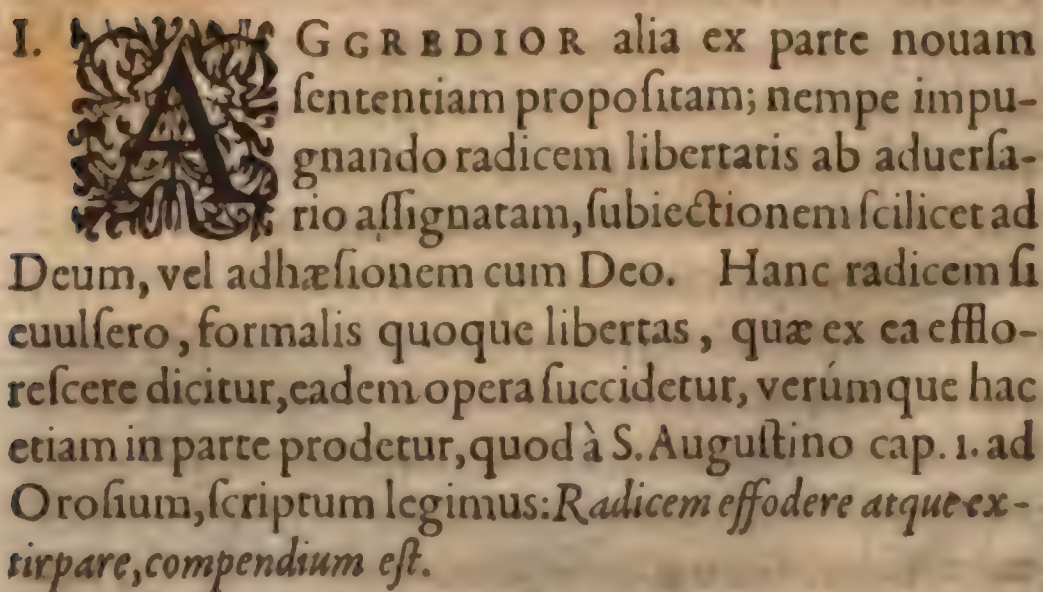 I. AGGREDIOR alia ex parte nouam
ſententiam propoſitam; nempe impu-
gnando radicem libertatis ab aduerſa-
rio aſſignatam, ſubiectionem ſcilicet ad
Deum, vel adhæſionem cum Deo. Hanc radicem ſi
euulſero, formalis quoque libertas, quæ ex ea efflo-
reſcere dicitur, eadem opera ſuccidetur, verúmque hac
etiam in parte prodetur, quod à S. Auguſtino cap. 1. ad
Oroſium, ſcriptum legimus: Radicem effodere atque ex-
tirpare, compendium eſt.